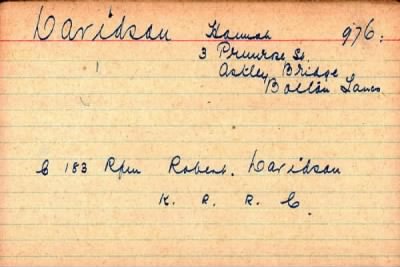 Davidson Hannah 976:
3 Primrose St
Astley Bridge
Bolton Lancs
C 183 Rfm Robert. Davidson
K. R. R. C.